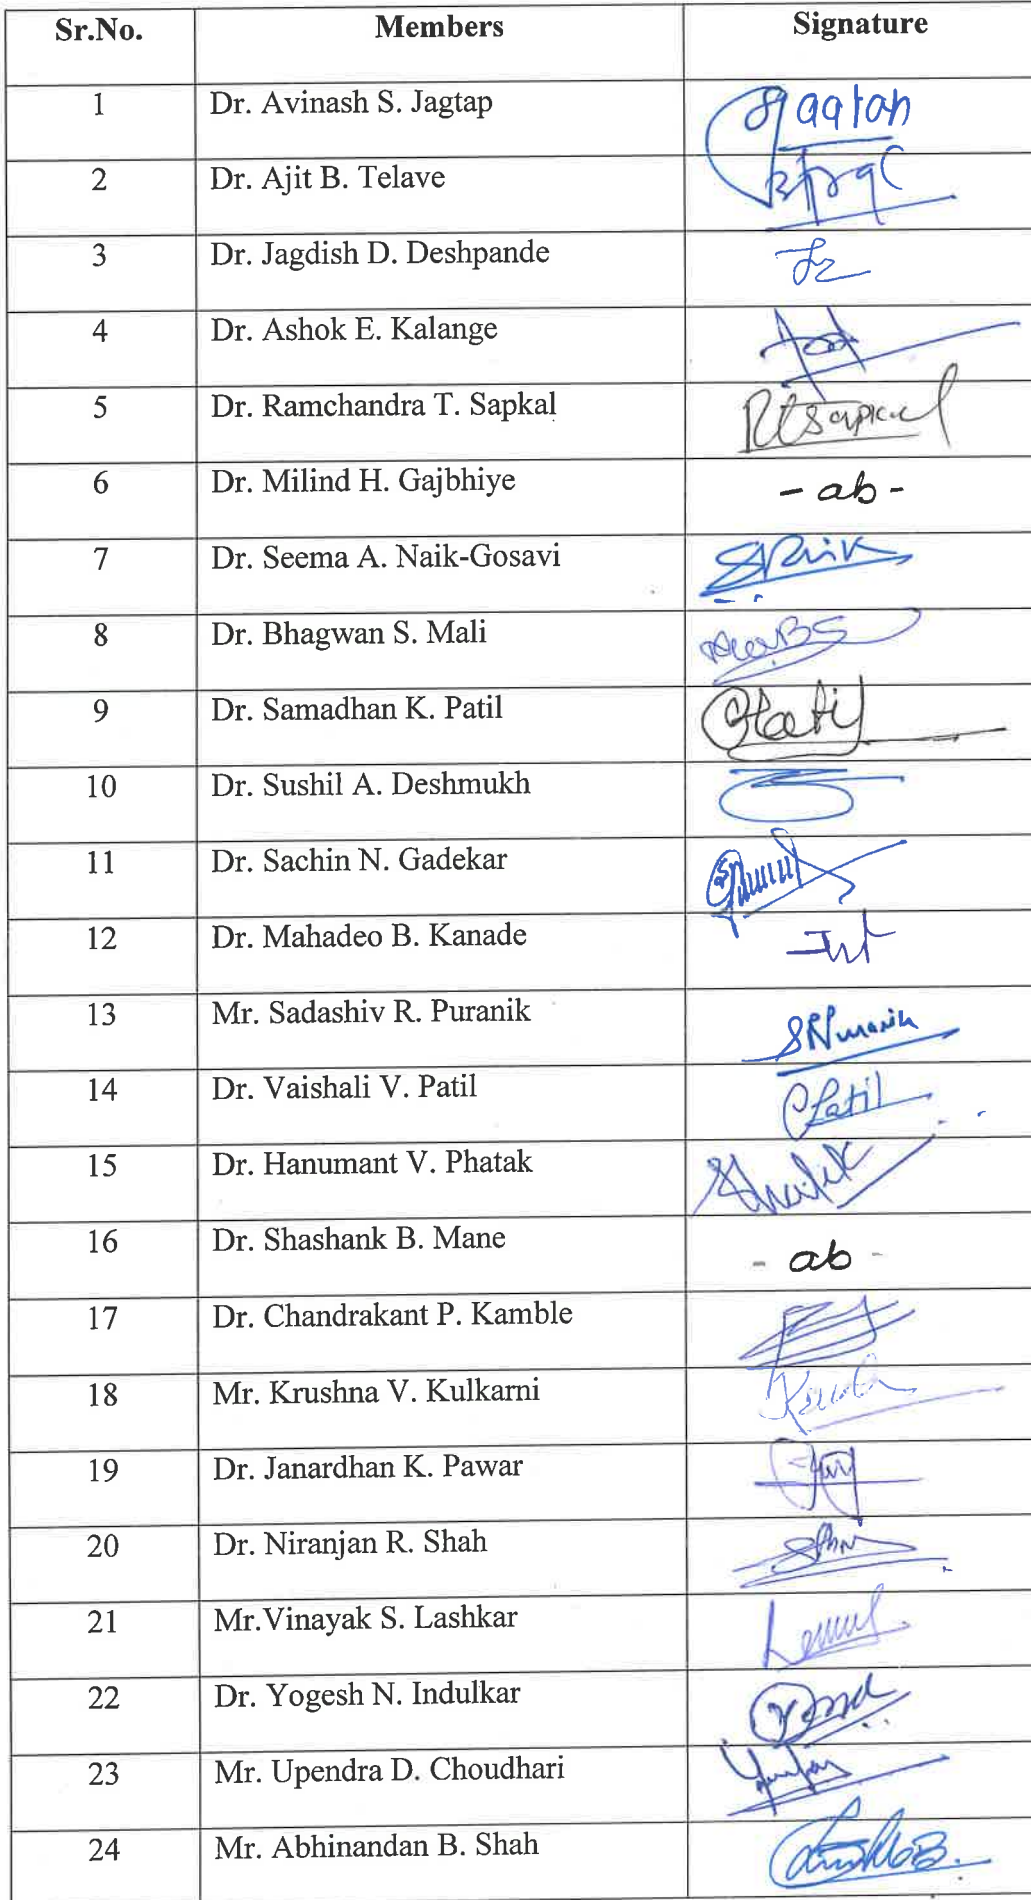 Sr.No. Members Signature
1 Dr. Avinash S. Jagtap Jagtap
2 Dr. Ajit B. Telave
3 Dr. Jagdish D. Deshpande
4 Dr. Ashok E. Kalange
5 Dr. Ramchandra T. Sapkal RTSapkal
6 Dr. Milind H. Gajbhiye - ab -
7 Dr. Seema A. Naik-Gosavi SNaik
8 Dr. Bhagwan S. Mali
9 Dr. Samadhan K. Patil Patil
10 Dr. Sushil A. Deshmukh
11 Dr. Sachin N. Gadekar
12 Dr. Mahadeo B. Kanade
13 Mr. Sadashiv R. Puranik SRPuranik
14 Dr. Vaishali V. Patil Patil
15 Dr. Hanumant V. Phatak
16 Dr. Shashank B. Mane - ab -
17 Dr. Chandrakant P. Kamble
18 Mr. Krushna V. Kulkarni
19 Dr. Janardhan K. Pawar
20 Dr. Niranjan R. Shah
21 Mr.Vinayak S. Lashkar
22 Dr. Yogesh N. Indulkar
23 Mr. Upendra D. Choudhari
24 Mr. Abhinandan B. Shah